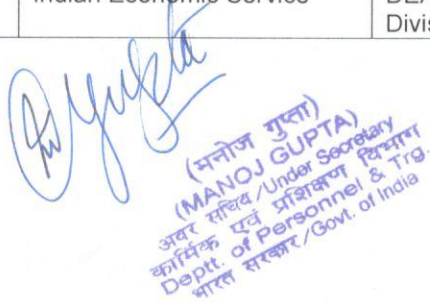 Indian Economic Service
Gupta
(मनोज गुप्ता)
(MANOJ GUPTA)
अवर सचिव/Under Secretary
कार्मिक एवं प्रशिक्षण विभाग
Deptt. of Personnel & Trg.
भारत सरकार/Govt. of India